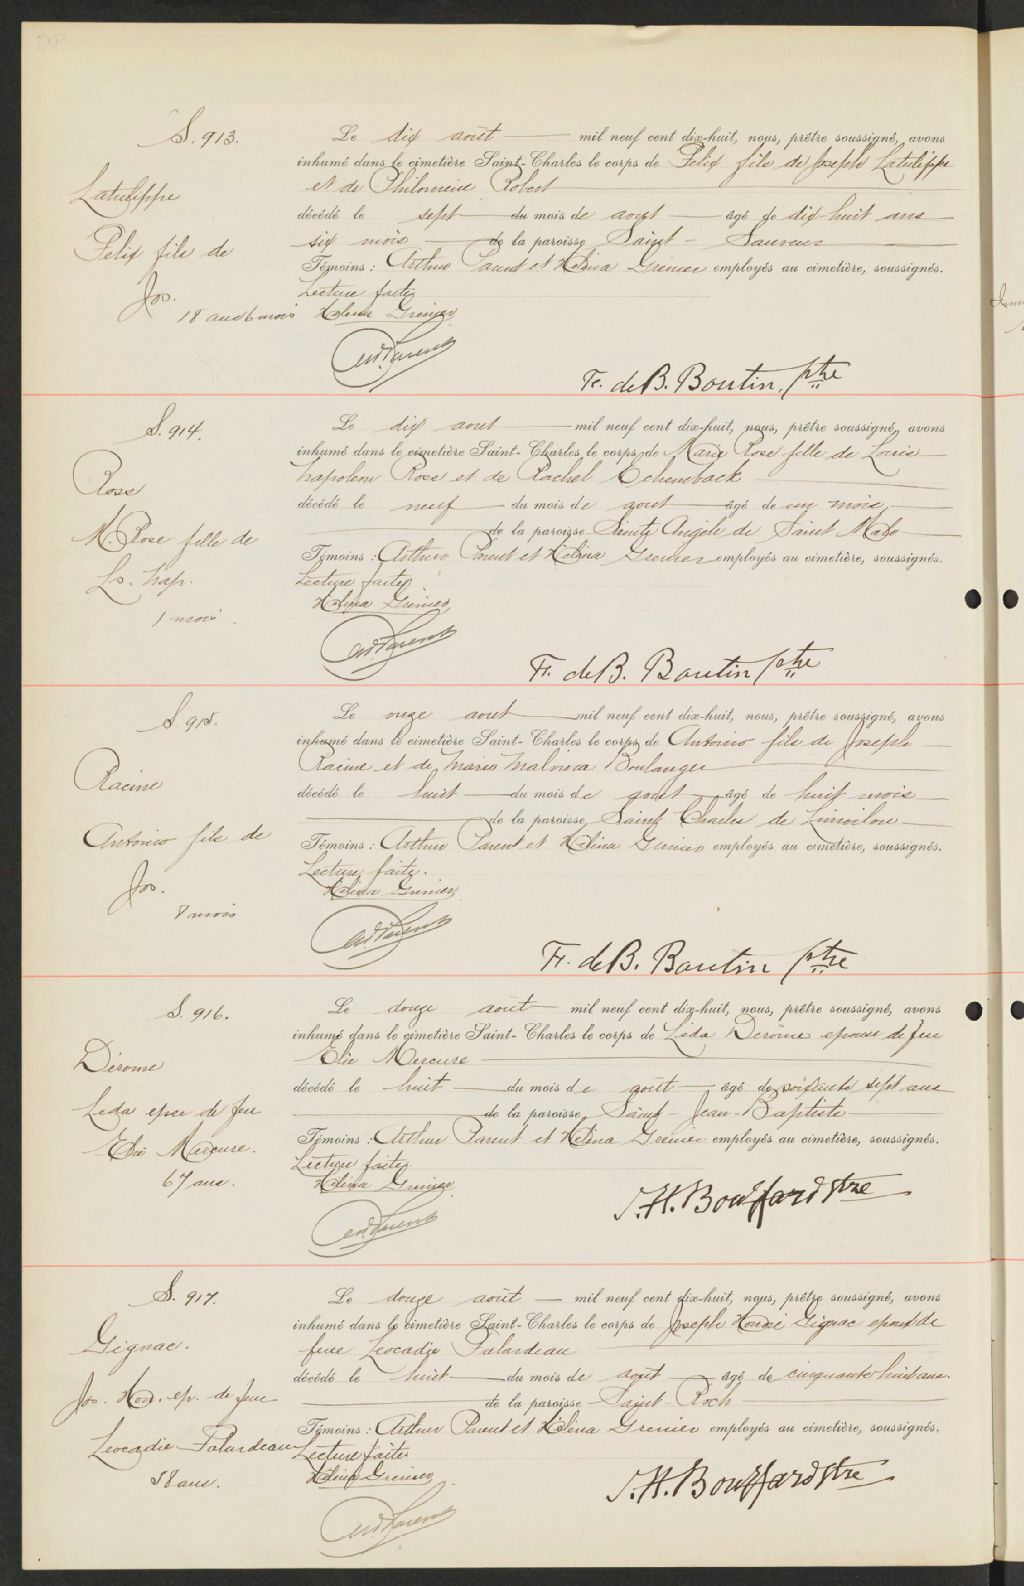 S. 913.
Latulippe
Felix fils de
Jos.
18 ans 6 mois
Le dix août mil neuf cent dix-huit, nous, prêtre soussigné, avons
inhumé dans le cimetière Saint-Charles le corps de Felix fils de Joseph Latulippe
et de Philomène Robert
décédé le sept du mois de aout âgé de dix-huit ans
six mois de la paroisse Saint-Sauveur
Témoins : Arthur Parent et Héléna Grenier employés au cimetière, soussignés.
Lecture faite
Héléna Grenier
Art. Parent
Fr. de B. Boutin, ptre
S. 914.
Ross
M. Rose fille de
Ls. Nap.
1 mois
Le dix aout mil neuf cent dix-huit, nous, prêtre soussigné, avons
inhumé dans le cimetière Saint-Charles le corps de Marie Rose fille de Louis
Napoleon Ross et de Rachel
décédé le neuf du mois de aout âgé de un mois
de la paroisse Sainte Angèle de Saint Malo
Témoins : Arthur Parent et Héléna Grenier employés au cimetière, soussignés.
Lecture faite
Héléna Grenier
Art. Parent
Fr. de B. Boutin ptre
S. 915.
Racine
Antonio fils de
Jos.
8 mois
Le onze aout mil neuf cent dix-huit, nous, prêtre soussigné, avons
inhumé dans le cimetière Saint-Charles le corps de Antonio fils de Joseph
Racine et de Marie Malvina Boulanger
décédé le huit du mois de aout âgé de huit mois
de la paroisse Saint Charles de Limoilou
Témoins : Arthur Parent et Héléna Grenier employés au cimetière, soussignés.
Lecture faite.
Héléna Grenier
Art. Parent
Fr. de B. Boutin ptre
S. 916.
Dérome
Leda epse de feu
Elie Mercure.
67 ans.
Le douze août mil neuf cent dix-huit, nous, prêtre soussigné, avons
inhumé dans le cimetière Saint-Charles le corps de Léda Derôme epouse de feu
Elie Mercure
décédé le huit du mois de août âgé de soixante sept ans
de la paroisse Saint-Jean-Baptiste
Témoins : Arthur Parent et Héléna Grenier employés au cimetière, soussignés.
Lecture faite
Héléna Grenier
Art. Parent
J. H. Bouffard ptre
S. 917.
Gignac.
Jos. Hon. ep. de feue
Leocadie Palardeau
58 ans.
Le douze août mil neuf cent dix-huit, nous, prêtre soussigné, avons
inhumé dans le cimetière Saint-Charles le corps de Joseph Honoré Gignac epoux de
feue Leocadie Palardeau
décédé le huit du mois de août âgé de cinquante huit ans.
de la paroisse Saint-Roch
Témoins : Arthur Parent et Héléna Grenier employés au cimetière, soussignés.
Lecture faite
Héléna Grenier
Art. Parent
J. H. Bouffard ptre